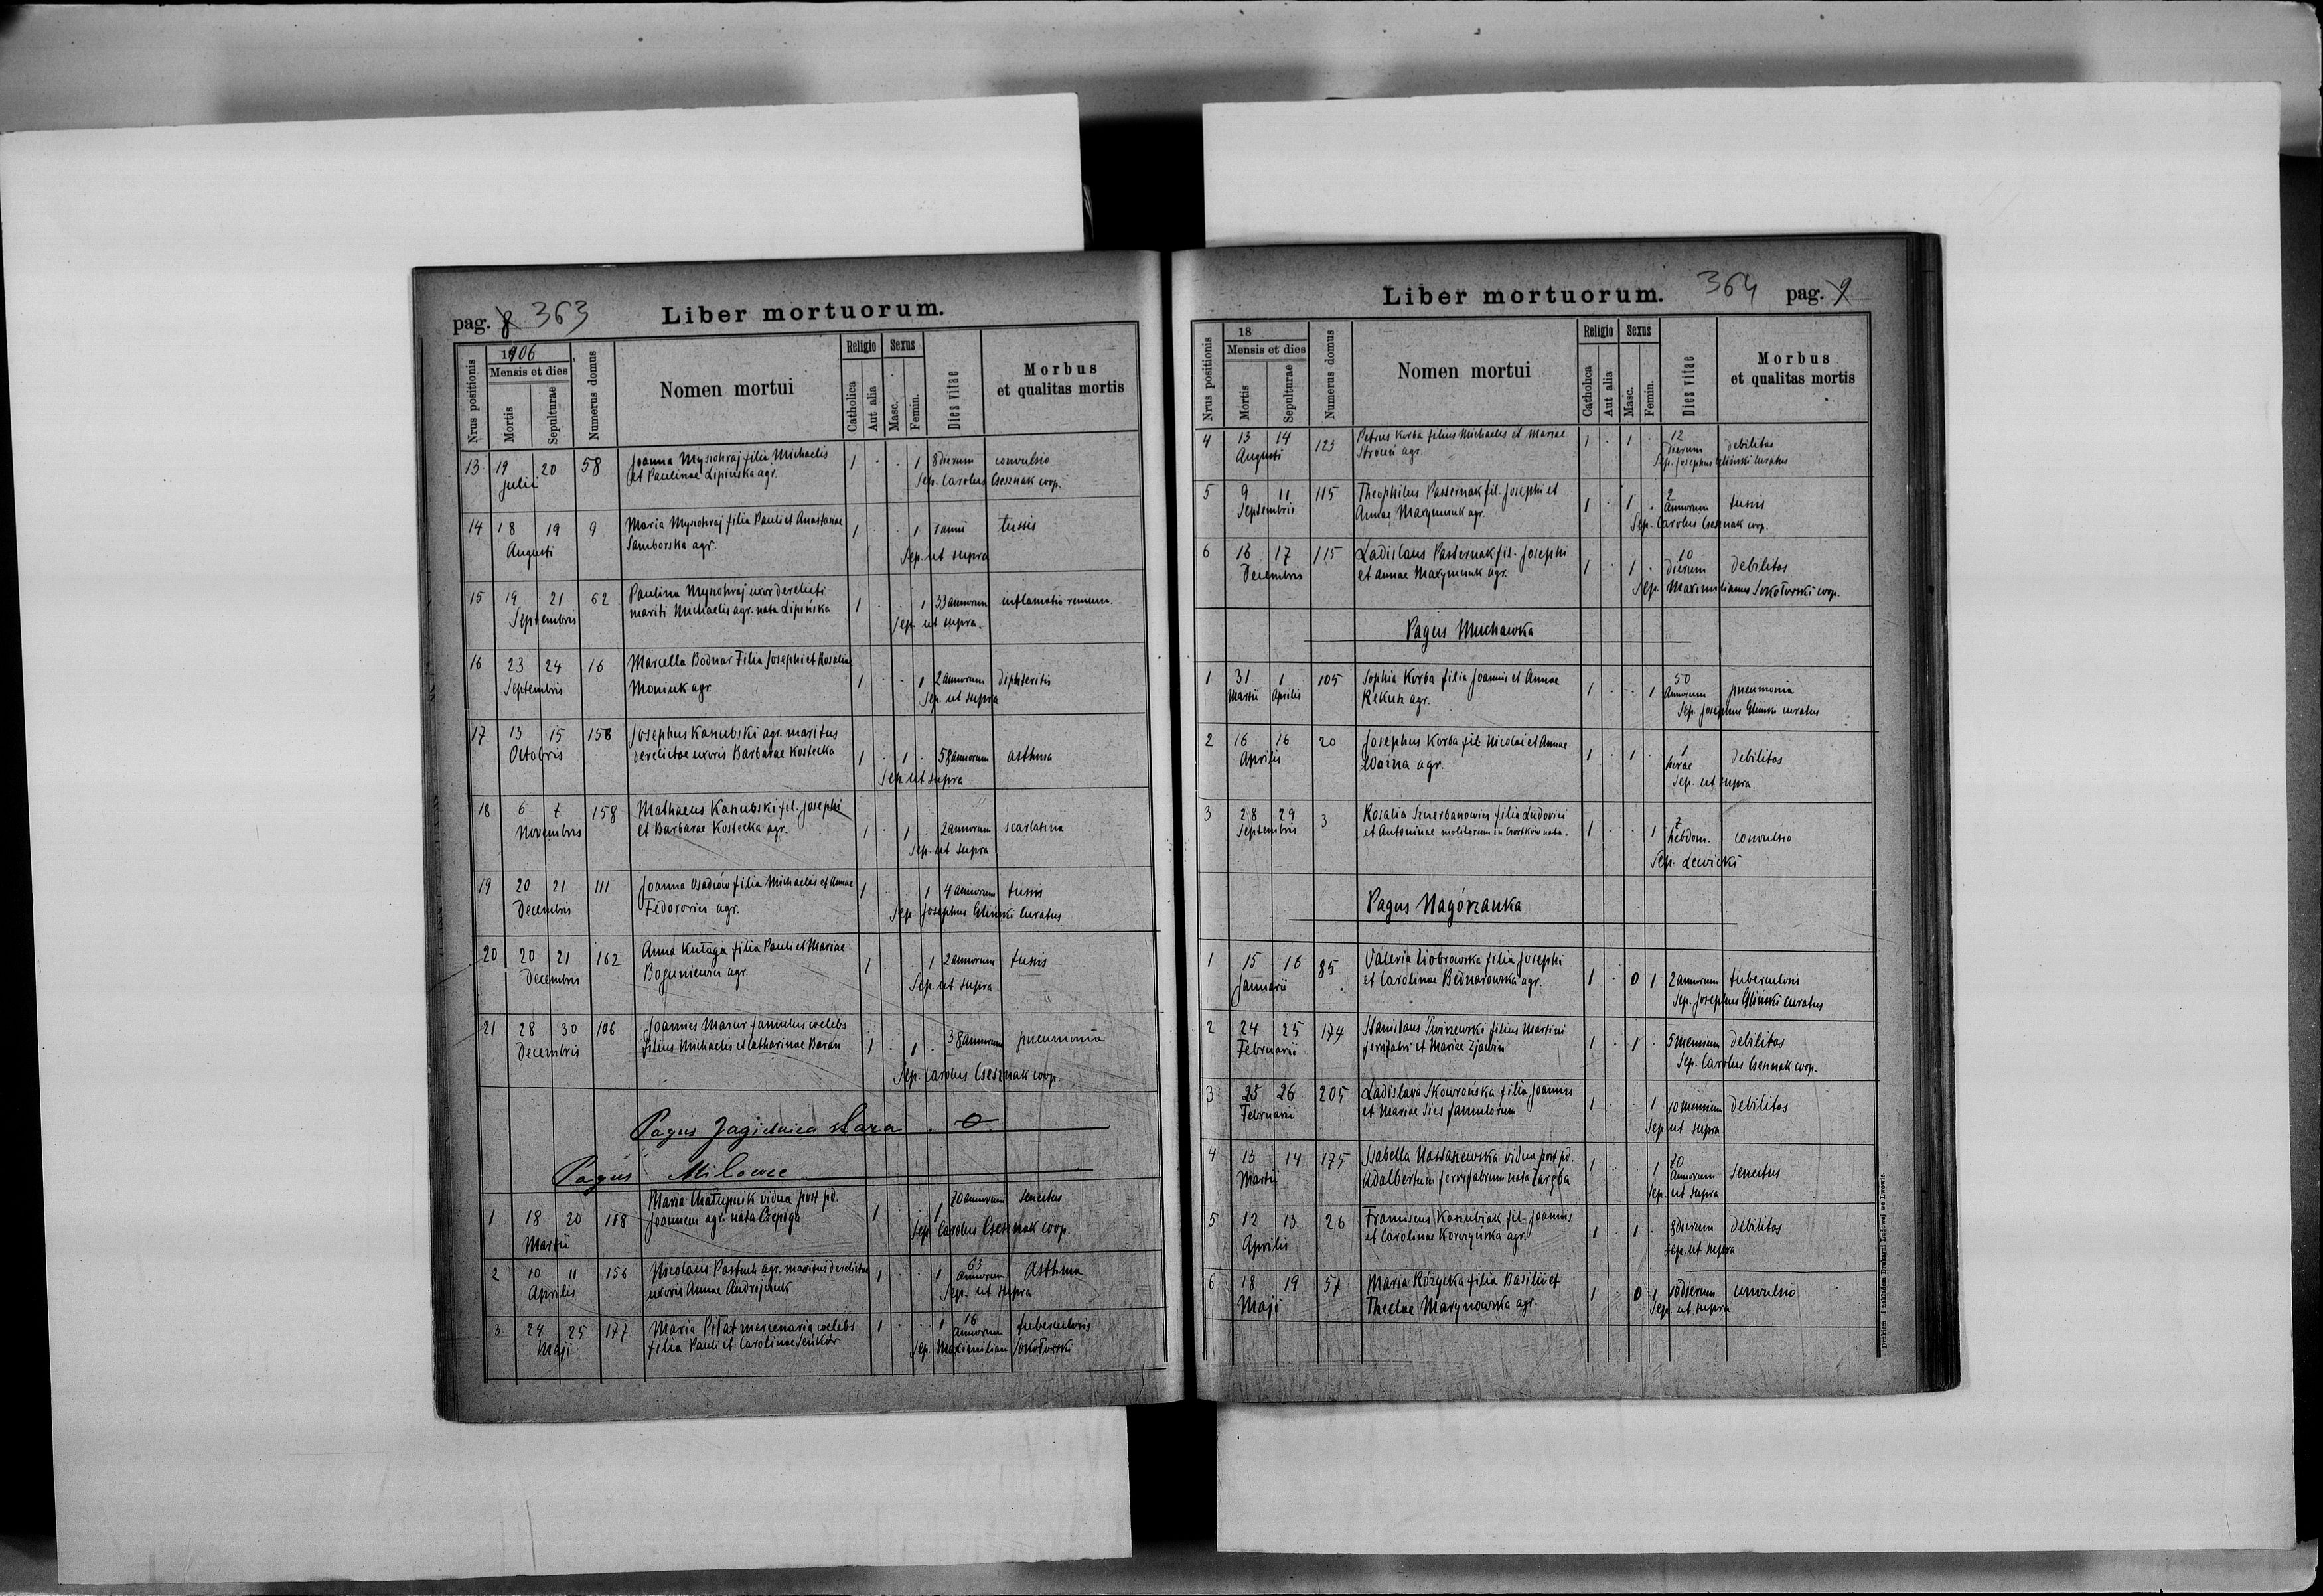 pag. 8 363
Liber mortuorum.
Nrus positionis
1906
Mensis et dies
Mortis
Sepulturae
Numerus domus
Nomen mortui
Religio
Catholica
Aut alia
Sexus
Masc.
Femin.
Dies vitae
Morbus
et qualitas mortis
13 19 20 58 Joanna Mysiohraj filia Michaelis 1 . . 1 8 dierum convulsio
Julii et Paulinae Lipińska agr. Sep. Carolus Csesznak coop.
14 18 19 9 Maria Mysiohraj filia Pauli et Anastasiae 1 . . 1 1 anni tussis
Augusti Samborska agr. Sep. ut supra
15 19 21 62 Paulina Mysiohraj uxor derelicti 1 . . 1 33 annorum inflamatio renium.
Septembris mariti Michaelis agr. nata Lipińska Sep. ut supra.
16 23 24 16 Marcella Bodnar Filia Josephi et Rosaliae 1 . . 1 2 annorum diphteritis
Septembris Moniuk agr. Sep. ut supra
17 13 15 158 Josephus Kasubski agr. maritus 1 . 1 . 58 annorum asthma
Octobris derelictae uxoris Barbarae Kostecka Sep. ut supra
18 6 7 158 Mathaeus Kasubski fil. Josephi 1 . 1 . 2 annorum scarlatina
Novembris et Barbarae Kostecka agr. Sep. ut supra
19 20 21 111 Joanna Osadców filia Michaelis et Annae 1 . . 1 4 annorum tussis
Decembris Fedorovies agr. Sep. Josephus Gliński Curatus
20 20 21 162 Anna Kułaga filia Pauli et Mariae 1 . . 1 2 annorum tussis
Decembris Boguniewicz agr. Sep. ut supra
21 28 30 106 Joannes Mazur famulus coelebs 1 . 1 . 38 annorum pneumonia
Decembris filius Michaelis et Catharinae Baran Sep. Carolus Csesznak coop.
Pagus Jagielnica stara . 0
Pagus Milowce
1 18 20 118 Maria Chałupnik vidua post pd. 1 . . 1 70 annorum senectus
Martii Joannem agr. nata Czepiga Sep. Carolus Csesznak coop.
2 10 11 156 Nicolaus Pastuch agr. maritus derelictae 1 . . 1 63 annorum Asthma
Aprilis uxoris Annae Andrijchuk Sep. ut supra
3 24 25 177 Maria Piłat mercenaria coelebs 1 . . 1 16 annorum tuberculosis
Maji filia Pauli et Carolinae Senkór Sep. Maximilian Sokołowski
Liber mortuorum. 364 pag. 9
Nrus positionis
18
Mensis et dies
Mortis
Sepulturae
Numerus domus
Nomen mortui
Religio
Catholica
Aut alia
Sexus
Masc.
Femin.
Dies vitae
Morbus
et qualitas mortis
4 13 14 123 Petrus Korba filius Michaelis et Mariae 1 . 1 . 12 dierum debilitas
Augusti agr. Sep. Josephus Gliński Curatus
5 9 11 115 Theophilus Pasternak fil. Josephi et 1 . 1 . 2 annorum tussis
Septembris Annae Maxymiuk agr. Sep. Carolus Csesznak coop.
6 16 17 115 Ladislaus Pasternak fil. Josephi 1 . 1 . 10 dierum debilitas
Decembris et Annae Maxymiuk agr. Sep. Maximilianus Sokołowski coop.
Pagus Muchawka
1 31 1 105 Sophia Korba filia Joannis et Annae 1 . . 1 50 annorum pneumonia
Martii Aprilis Rekusz agr. Sep. Josephus Glinski curatus
2 16 16 20 Josephus Korba fil. Nicolai et Annae 1 . 1 . 1 horae debilitas
Aprilis Woźna agr. Sep. ut supra.
3 28 29 3 Rosalia Sczerbanowicz filia Ludovici 1 . . 1 7 hebdom. convulsio
Septembris et Antoninae molitorum in Czortków nata. Sep. Lewicki
Pagus Nagórzanka
1 15 16 85 Valeria Ziobrowska filia Josephi 1 . 0 1 2 annorum tuberculosis
Januarii et Carolinae Bednarowska agr. Sep. Josephus Gliński Curatus
2 24 25 174 Stanislaus Świszewski filius Martini 1 . 1 . 5 mensium debilitas
Februarii ferrifabri et Mariae Zjawin Sep. Carolus Csesznak coop.
3 25 26 205 Ladislava Skowrońska filia Joannis 1 . . 1 10 mensium debilitas
Februarii et Mariae Sies famulorum Sep. ut supra
4 13 14 175 Isabella Nastaszewska vidua post pd. 1 . . 1 70 annorum senectus
Martii Adalbertum ferrifabrum nata Zaręba Sep. ut supra
5 12 13 26 Franciscus Kasubiak fil. Joannis 1 . 1 . 8 dierum debilitas
Aprilis et Carolinae Korczyńska agr. Sep. ut supra
6 18 19 57 Maria Różycka filia Basilii et 1 . 0 1 10 dierum convulsio
Maji Theclae Marynowska agr. Sep. ut supra
Drukiem i nakładem Drukarni Ludowej we Lwowie.